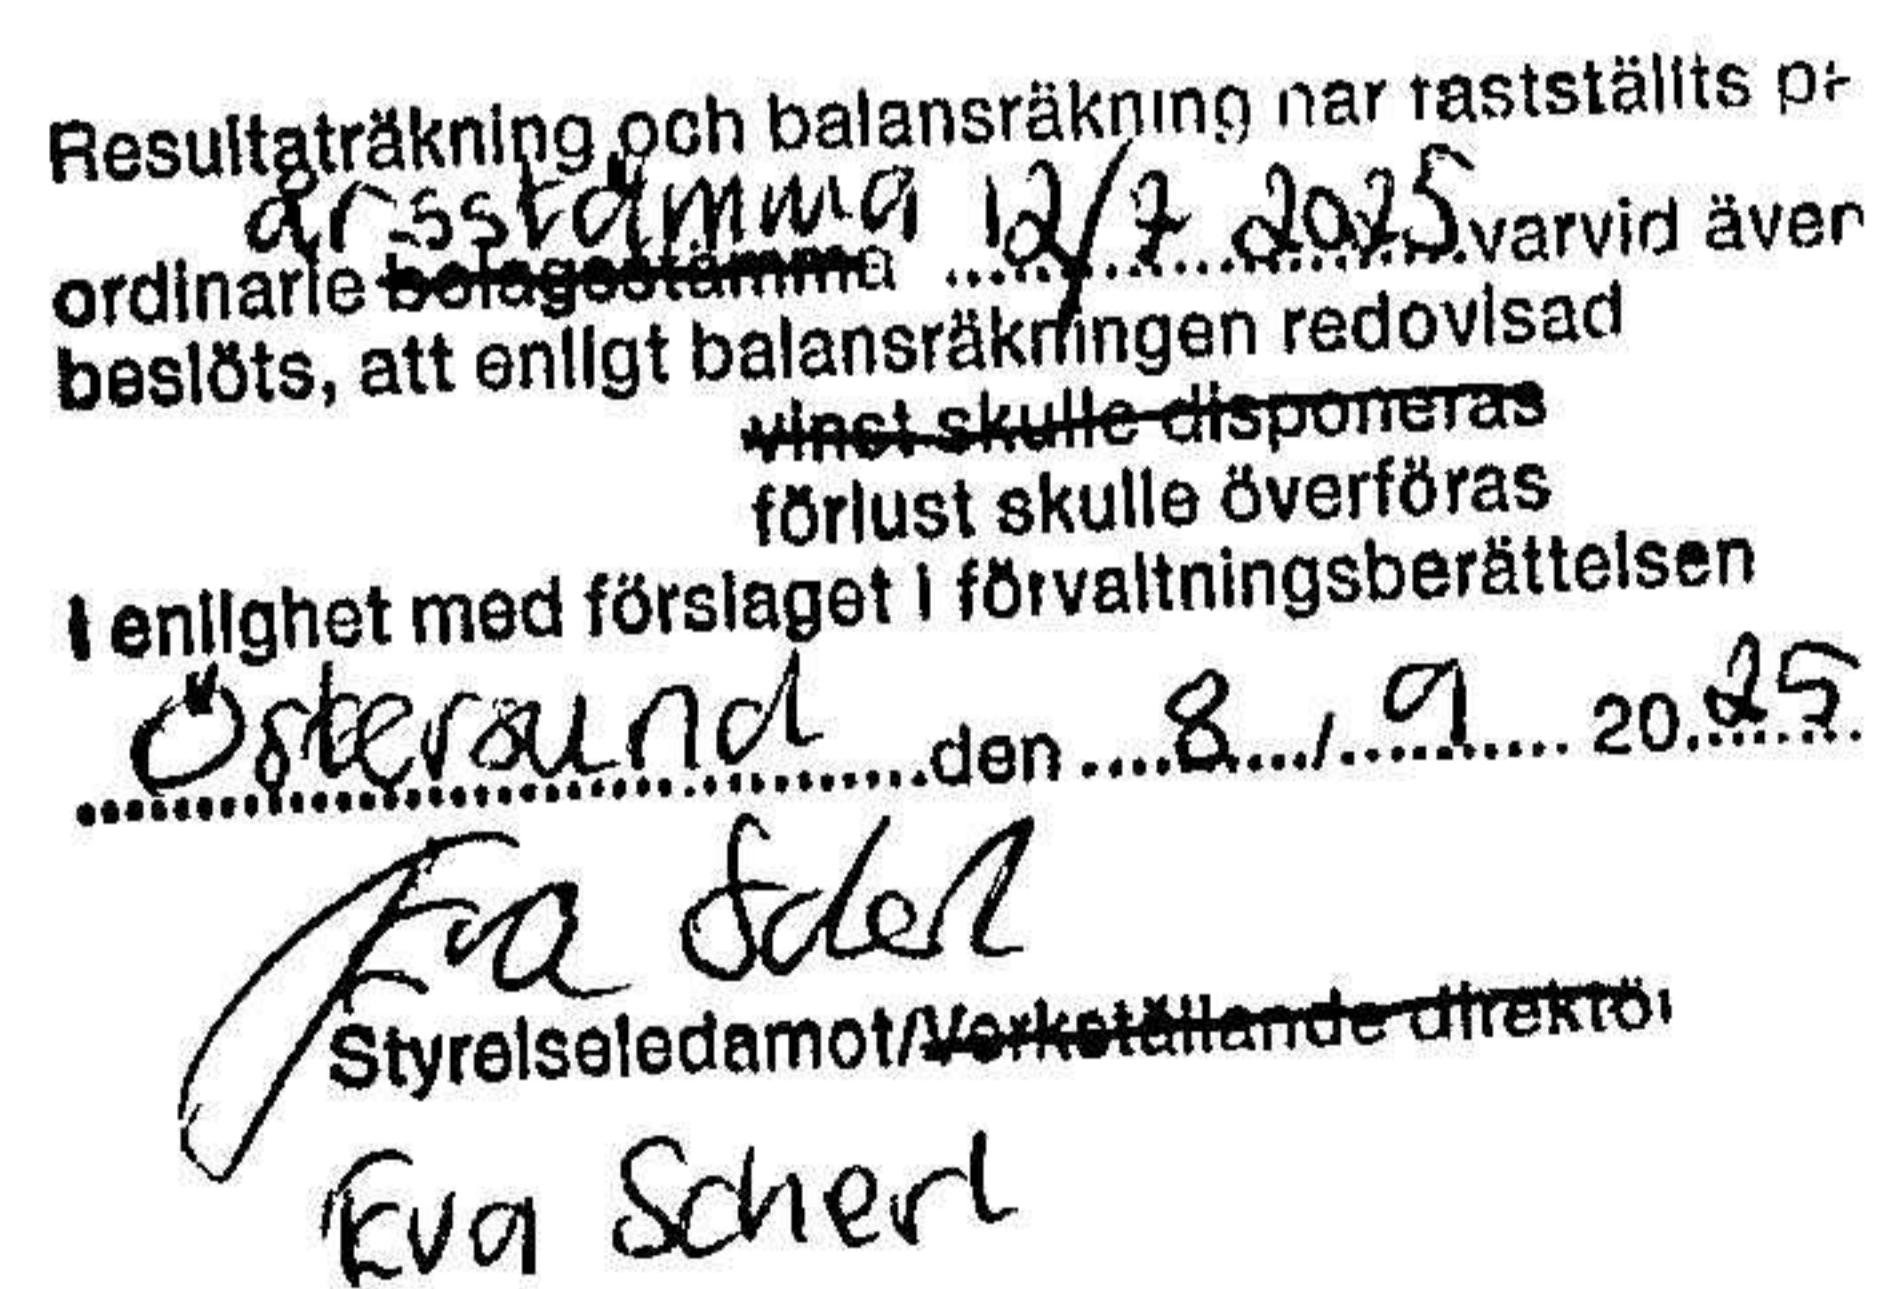 Resultaträkning och balansräkning har fastställts på
årsstämma 12/7 2025
ordinarie bolagsstämma ........................ varvid även
beslöts, att enligt balansräkningen redovisad
vinst skulle disponeras
förlust skulle överföras
i enlighet med förslaget i förvaltningsberättelsen
Östersund den 8 / 9 2025
Eva Scherl
Styrelseledamot/Verkställande direktör
Eva Scherl